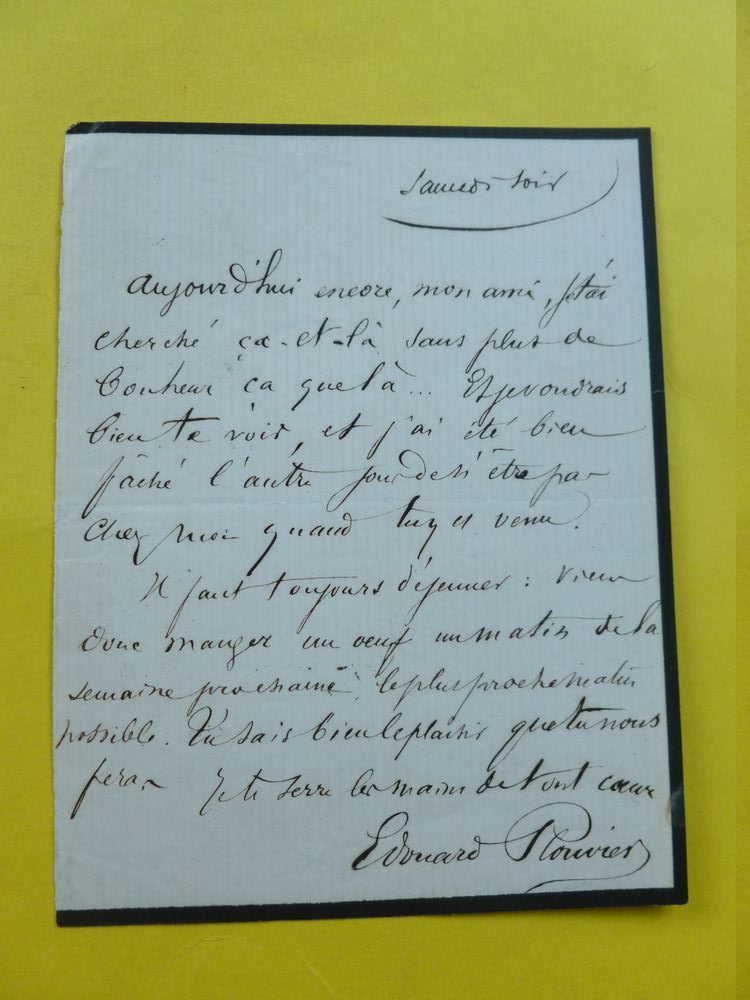 Samedi soir
Aujourd'hui encore, mon ami, je t'ai
cherché ça-et-là sans plus de
bonheur ça que là... Et je voudrais
bien te voir, et j'ai été bien
fâché l'autre jour de n'être pas
chez moi quand tu y es venu.
Il faut toujours déjeuner : viens
donc manger un oeuf un matin de la
semaine prochaine, le plus proche matin
possible. Tu sais bien le plaisir que tu nous
feras. Je te serre les mains de tout coeur
Edouard Plouvier